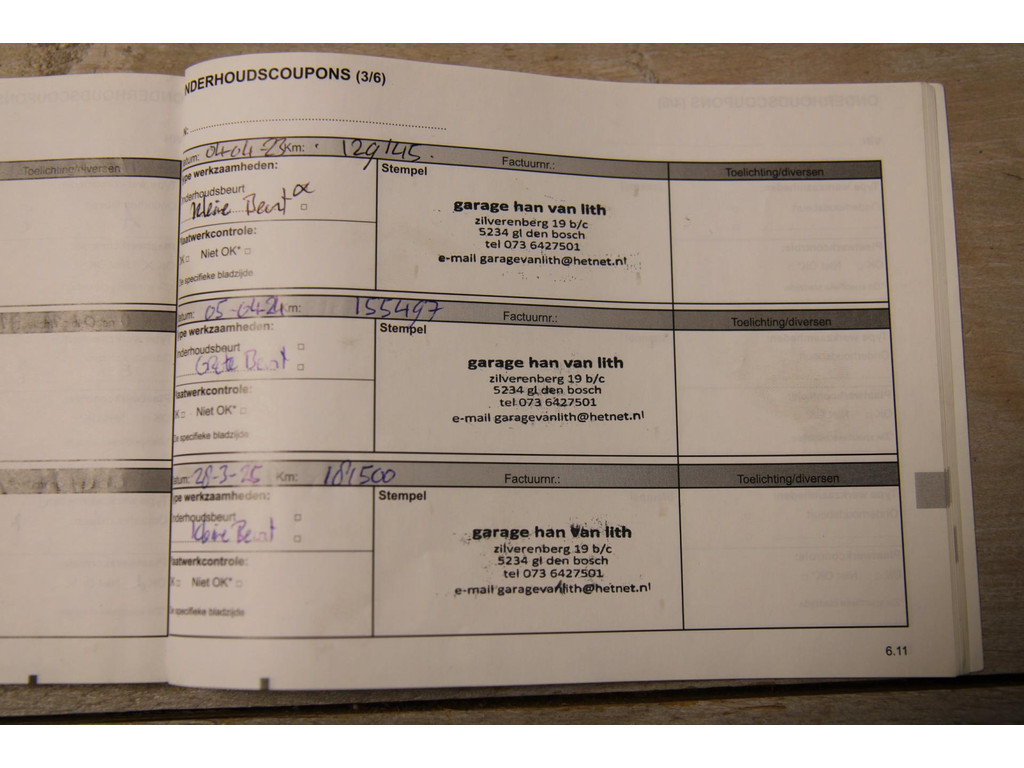 NDERHOUDSCOUPONS (3/6)
N:
atum: 04-04-23 Km: 129145. Factuurnr.: Toelichting/diversen
ype werkzaamheden: Stempel
nderhoudsbeurt
Kleine Beurt
laatwerkcontrole:
K Niet OK*
De specifieke bladzijde
garage han van lith
zilverenberg 19 b/c
5234 gl den bosch
tel 073 6427501
e-mail garagevanlith@hetnet.nl
atum: 05-04-24 Km: 155497 Factuurnr.: Toelichting/diversen
ype werkzaamheden: Stempel
nderhoudsbeurt
Grote Beurt
laatwerkcontrole:
K Niet OK*
De specifieke bladzijde
garage han van lith
zilverenberg 19 b/c
5234 gl den bosch
tel 073 6427501
e-mail garagevanlith@hetnet.nl
atum: 28-3-25 Km: 181500 Factuurnr.: Toelichting/diversen
ype werkzaamheden: Stempel
nderhoudsbeurt
Kleine Beurt
laatwerkcontrole:
K Niet OK*
De specifieke bladzijde
garage han van lith
zilverenberg 19 b/c
5234 gl den bosch
tel 073 6427501
e-mail garagevanlith@hetnet.nl
6.11
Toelichting/diversen